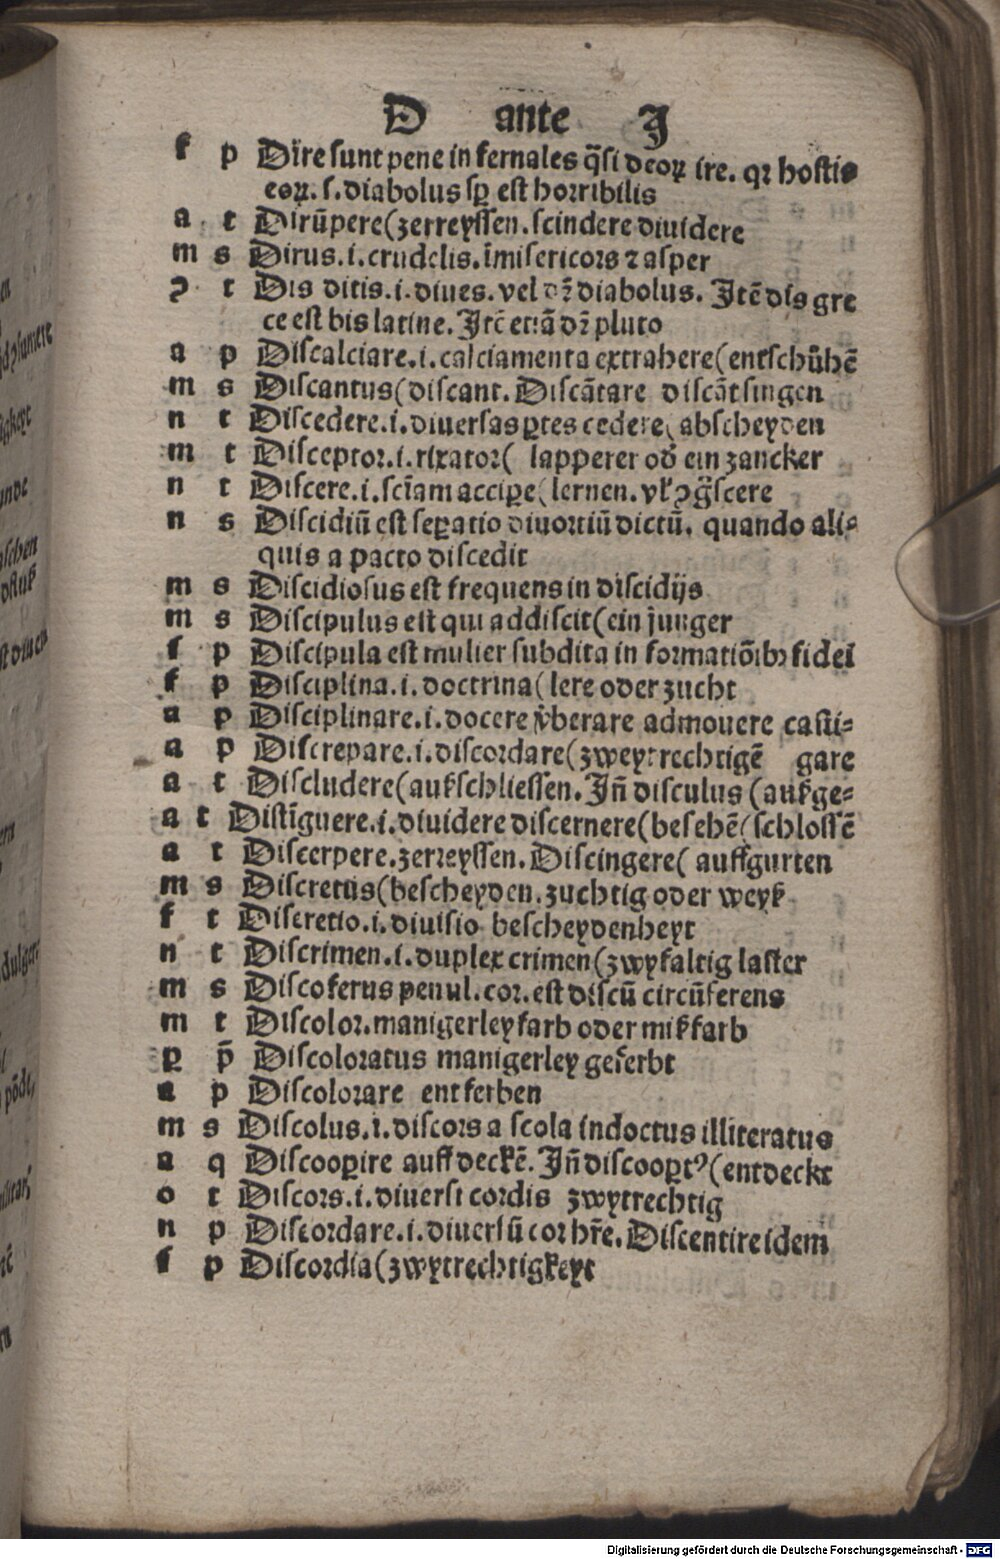 D ante J
f p Dire sunt pene infernales q̃si deoꝝ ire. qꝛ hostis
eoꝝ. s. diabolus sꝑ est horribilis
a t Dirũpere(zerreyssen. scindere diuidere
m s Dirus. i. crudelis. ĩmisericors ⁊ asper
ꝯ t Dis ditis. i. diues. vel dꝛ̃ diabolus. Jtẽ dis gre
ce est bis latine. Jtẽ etiã dꝛ̃ pluto
a p Discalciare. i. calciamenta extrahere(entschůhẽ
m s Discantus(discant. Discãtare discãt singen
n t Discedere. i. diuersas ꝑtes cedere(abscheyden
m t Disceptor. i. rixator( lapperer oď ein zancker
n t Discere. i. sciãm accipe(lernen. vl̃ ꝯg̃scere
n s Discidiũ est seꝑatio diuortiũ dictũ. quando ali⸗
quis a pacto discedit
m s Discidiosus est frequens in discidijs
m s Discipulus est qui addiscit(ein junger
f p Discipula est mulier subdita in formatiõibꝫ fidei
f p Disciplina. i. doctrina(lere oder zucht
a p Disciplinare. i. docere v̾berare admouere casti⸗
a p Discrepare. i. discordare(zweytrechtigẽ gare
a t Discludere(aufschliessen. Jñ disculus (aufge⸗
a t Distĩguere. i. diuidere discernere(besehẽ(schlossẽ
a t Discerpere. zerreyssen. Discingere( auffgurten
m s Discretus(bescheyden. zuchtig oder weyß
f t Discretio. i. diuisio bescheydenheyt
n t Discrimen. i. duplex crimen(zwyfaltig laster
m s Discoferus penul. cor. est discũ circũferens
m t Discolor. manigerley farb oder mißfarb
ꝑ p̃ Discoloratus manigerley geferbt
a p Discolorare entferben
m s Discolus. i. discors a scola indoctus illiteratus
a q Discooꝑire auffdeckẽ. Jñ discooꝑtꝰ(entdeckt
o t Discors. i. diuersi cordis zwytrechtig
n p Discordare. i. diuersũ cor hr̃e. Discentire idem
f p Discordia(zwytrechtigkeyt
Digitalisierung gefördert durch die Deutsche Forschungsgemeinschaft - DFG